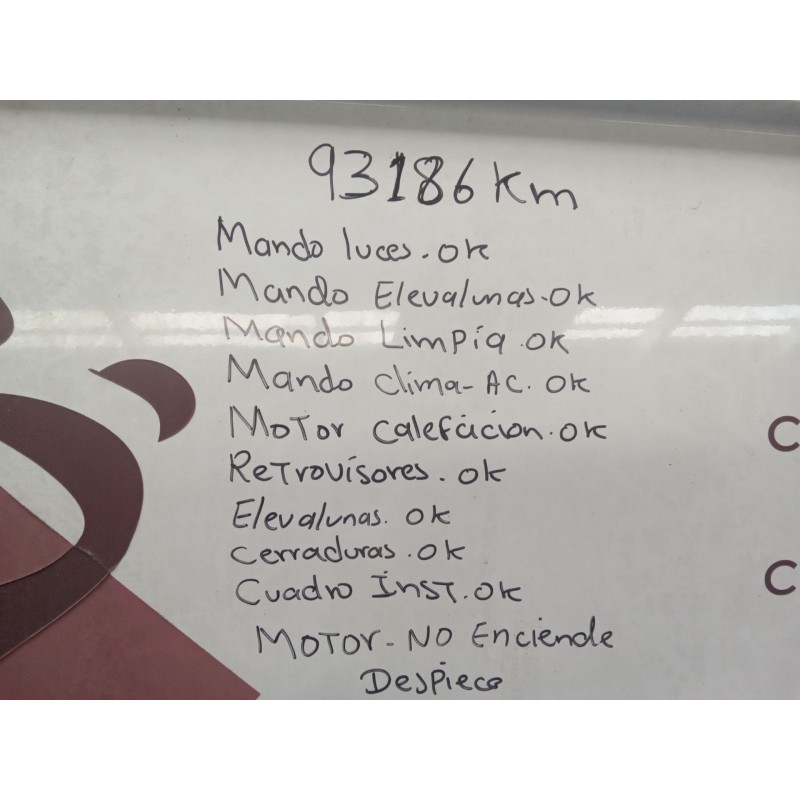 93186 Km
Mando luces. ok
Mando Elevalunas. ok
Mando Limpia. ok
Mando clima-AC. ok
Motor calefacion. ok
Retrovisores. ok
Elevalunas. ok
cerraduras. ok
Cuadro Inst. ok
Motor - NO Enciende
Despiece
C
C